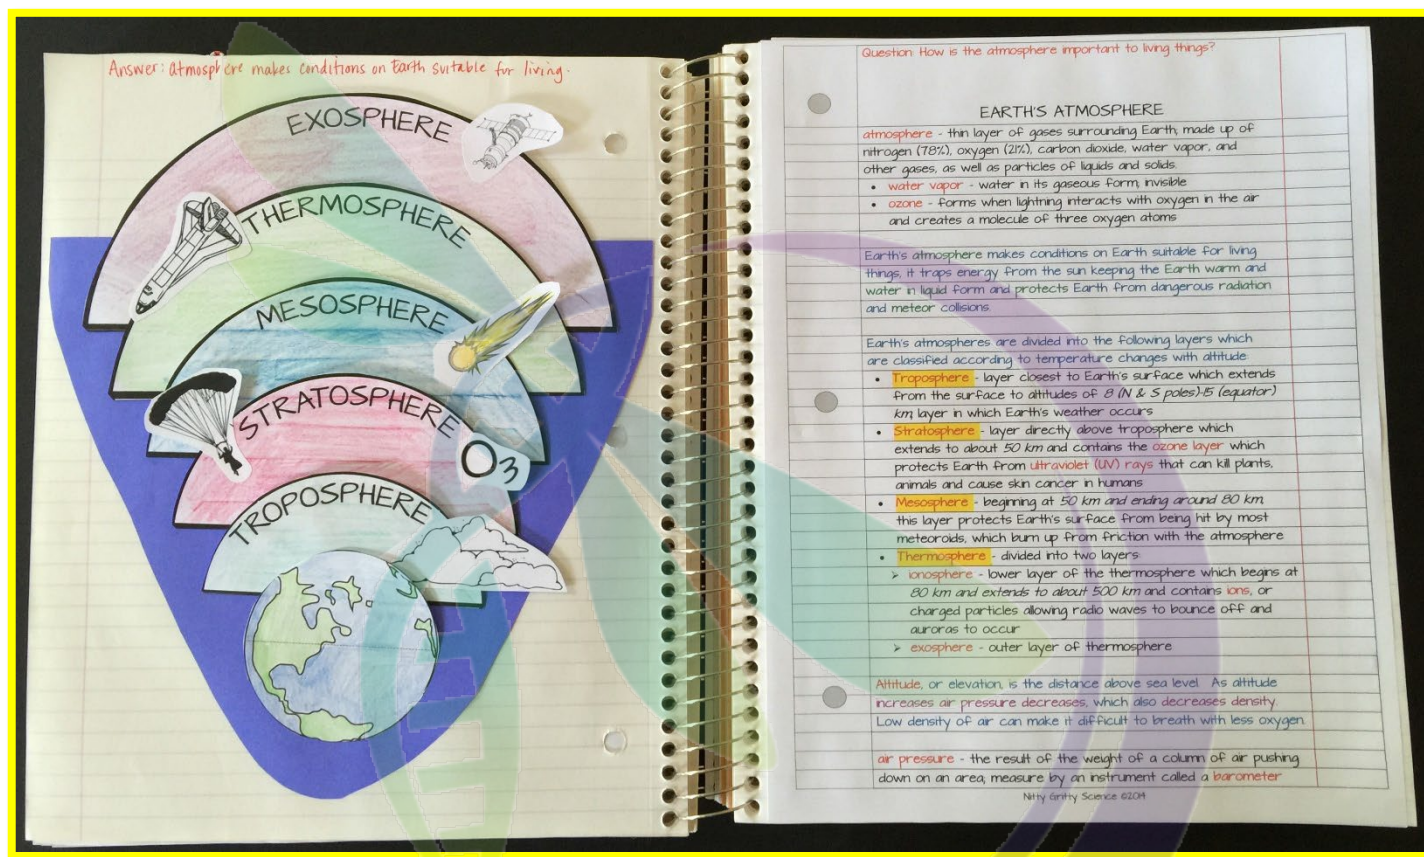 Answer: Atmosphere makes conditions on Earth suitable for living.
EXOSPHERE
THERMOSPHERE
MESOSPHERE
STRATOSPHERE
O3
TROPOSPHERE
Question: How is the atmosphere important to living things?
EARTH'S ATMOSPHERE
atmosphere - thin layer of gases surrounding Earth; made up of
nitrogen (78%), oxygen (21%), carbon dioxide, water vapor, and
other gases, as well as particles of liquids and solids.
• water vapor - water in its gaseous form, invisible
• ozone - forms when lightning interacts with oxygen in the air
and creates a molecule of three oxygen atoms
Earth's atmosphere makes conditions on Earth suitable for living
things, it traps energy from the sun keeping the Earth warm and
water in liquid form and protects Earth from dangerous radiation
and meteor collisions.
Earth's atmospheres are divided into the following layers which
are classified according to temperature changes with altitude:
• Troposphere - layer closest to Earth's surface which extends
from the surface to altitudes of 8 (N & S poles)-15 (equator)
km; layer in which Earth's weather occurs
• Stratosphere - layer directly above troposphere which
extends to about 50 km and contains the ozone layer which
protects Earth from ultraviolet (UV) rays that can kill plants,
animals and cause skin cancer in humans
• Mesosphere - beginning at 50 km and ending around 80 km,
this layer protects Earth's surface from being hit by most
meteoroids, which burn up from friction with the atmosphere
• Thermosphere - divided into two layers:
➢ ionosphere - lower layer of the thermosphere which begins at
80 km and extends to about 500 km and contains ions, or
charged particles allowing radio waves to bounce off and
auroras to occur
➢ exosphere - outer layer of thermosphere
Altitude, or elevation, is the distance above sea level. As altitude
increases air pressure decreases, which also decreases density.
Low density of air can make it difficult to breath with less oxygen.
air pressure - the result of the weight of a column of air pushing
down on an area; measure by an instrument called a barometer
Nitty Gritty Science ©2014